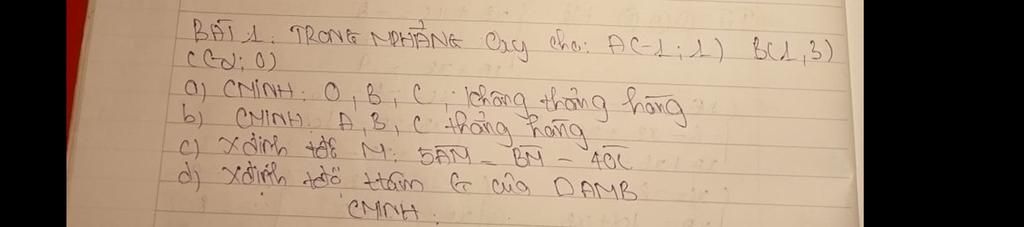 BÀI 1: TRONG MPHẲNG Oxy cho: A(-1; 1) B(1, 3)
C(-2; 0)
a) CMINH: O, B, C, không thẳng hàng
b) CMINH: A, B, C thẳng hàng
c) Xđịnh tđộ M: 5AM = BM - 4OC
d) Xđịnh tđộ ttâm G của DAMB
CMINH.